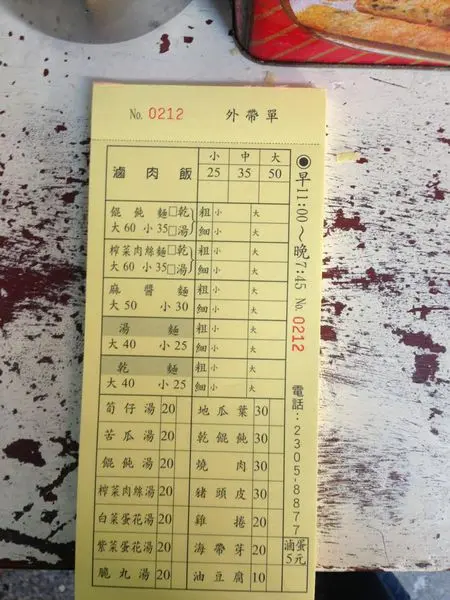 No. 0212 外帶單
小 中 大
滷肉飯 25 35 50
餛飩麵□乾 粗 小 大
大60 小35□湯 細 小 大
榨菜肉絲麵□乾 粗 小 大
大60 小35□湯 細 小 大
麻醬麵 粗 小 大
大50 小30 細 小 大
湯麵 粗 小 大
大40 小25 細 小 大
乾麵 粗 小 大
大40 小25 細 小 大
筍仔湯 20 地瓜葉 30
苦瓜湯 20 乾餛飩 30
餛飩湯 20 燒肉 30
榨菜肉絲湯 20 豬頭皮 30
白菜蛋花湯 20 雞捲 20
紫菜蛋花湯 20 海帶芽 20
脆丸湯 20 油豆腐 10
◉早11:00～晚7:45 No. 0212
電話:2305-8877
滷蛋
5元